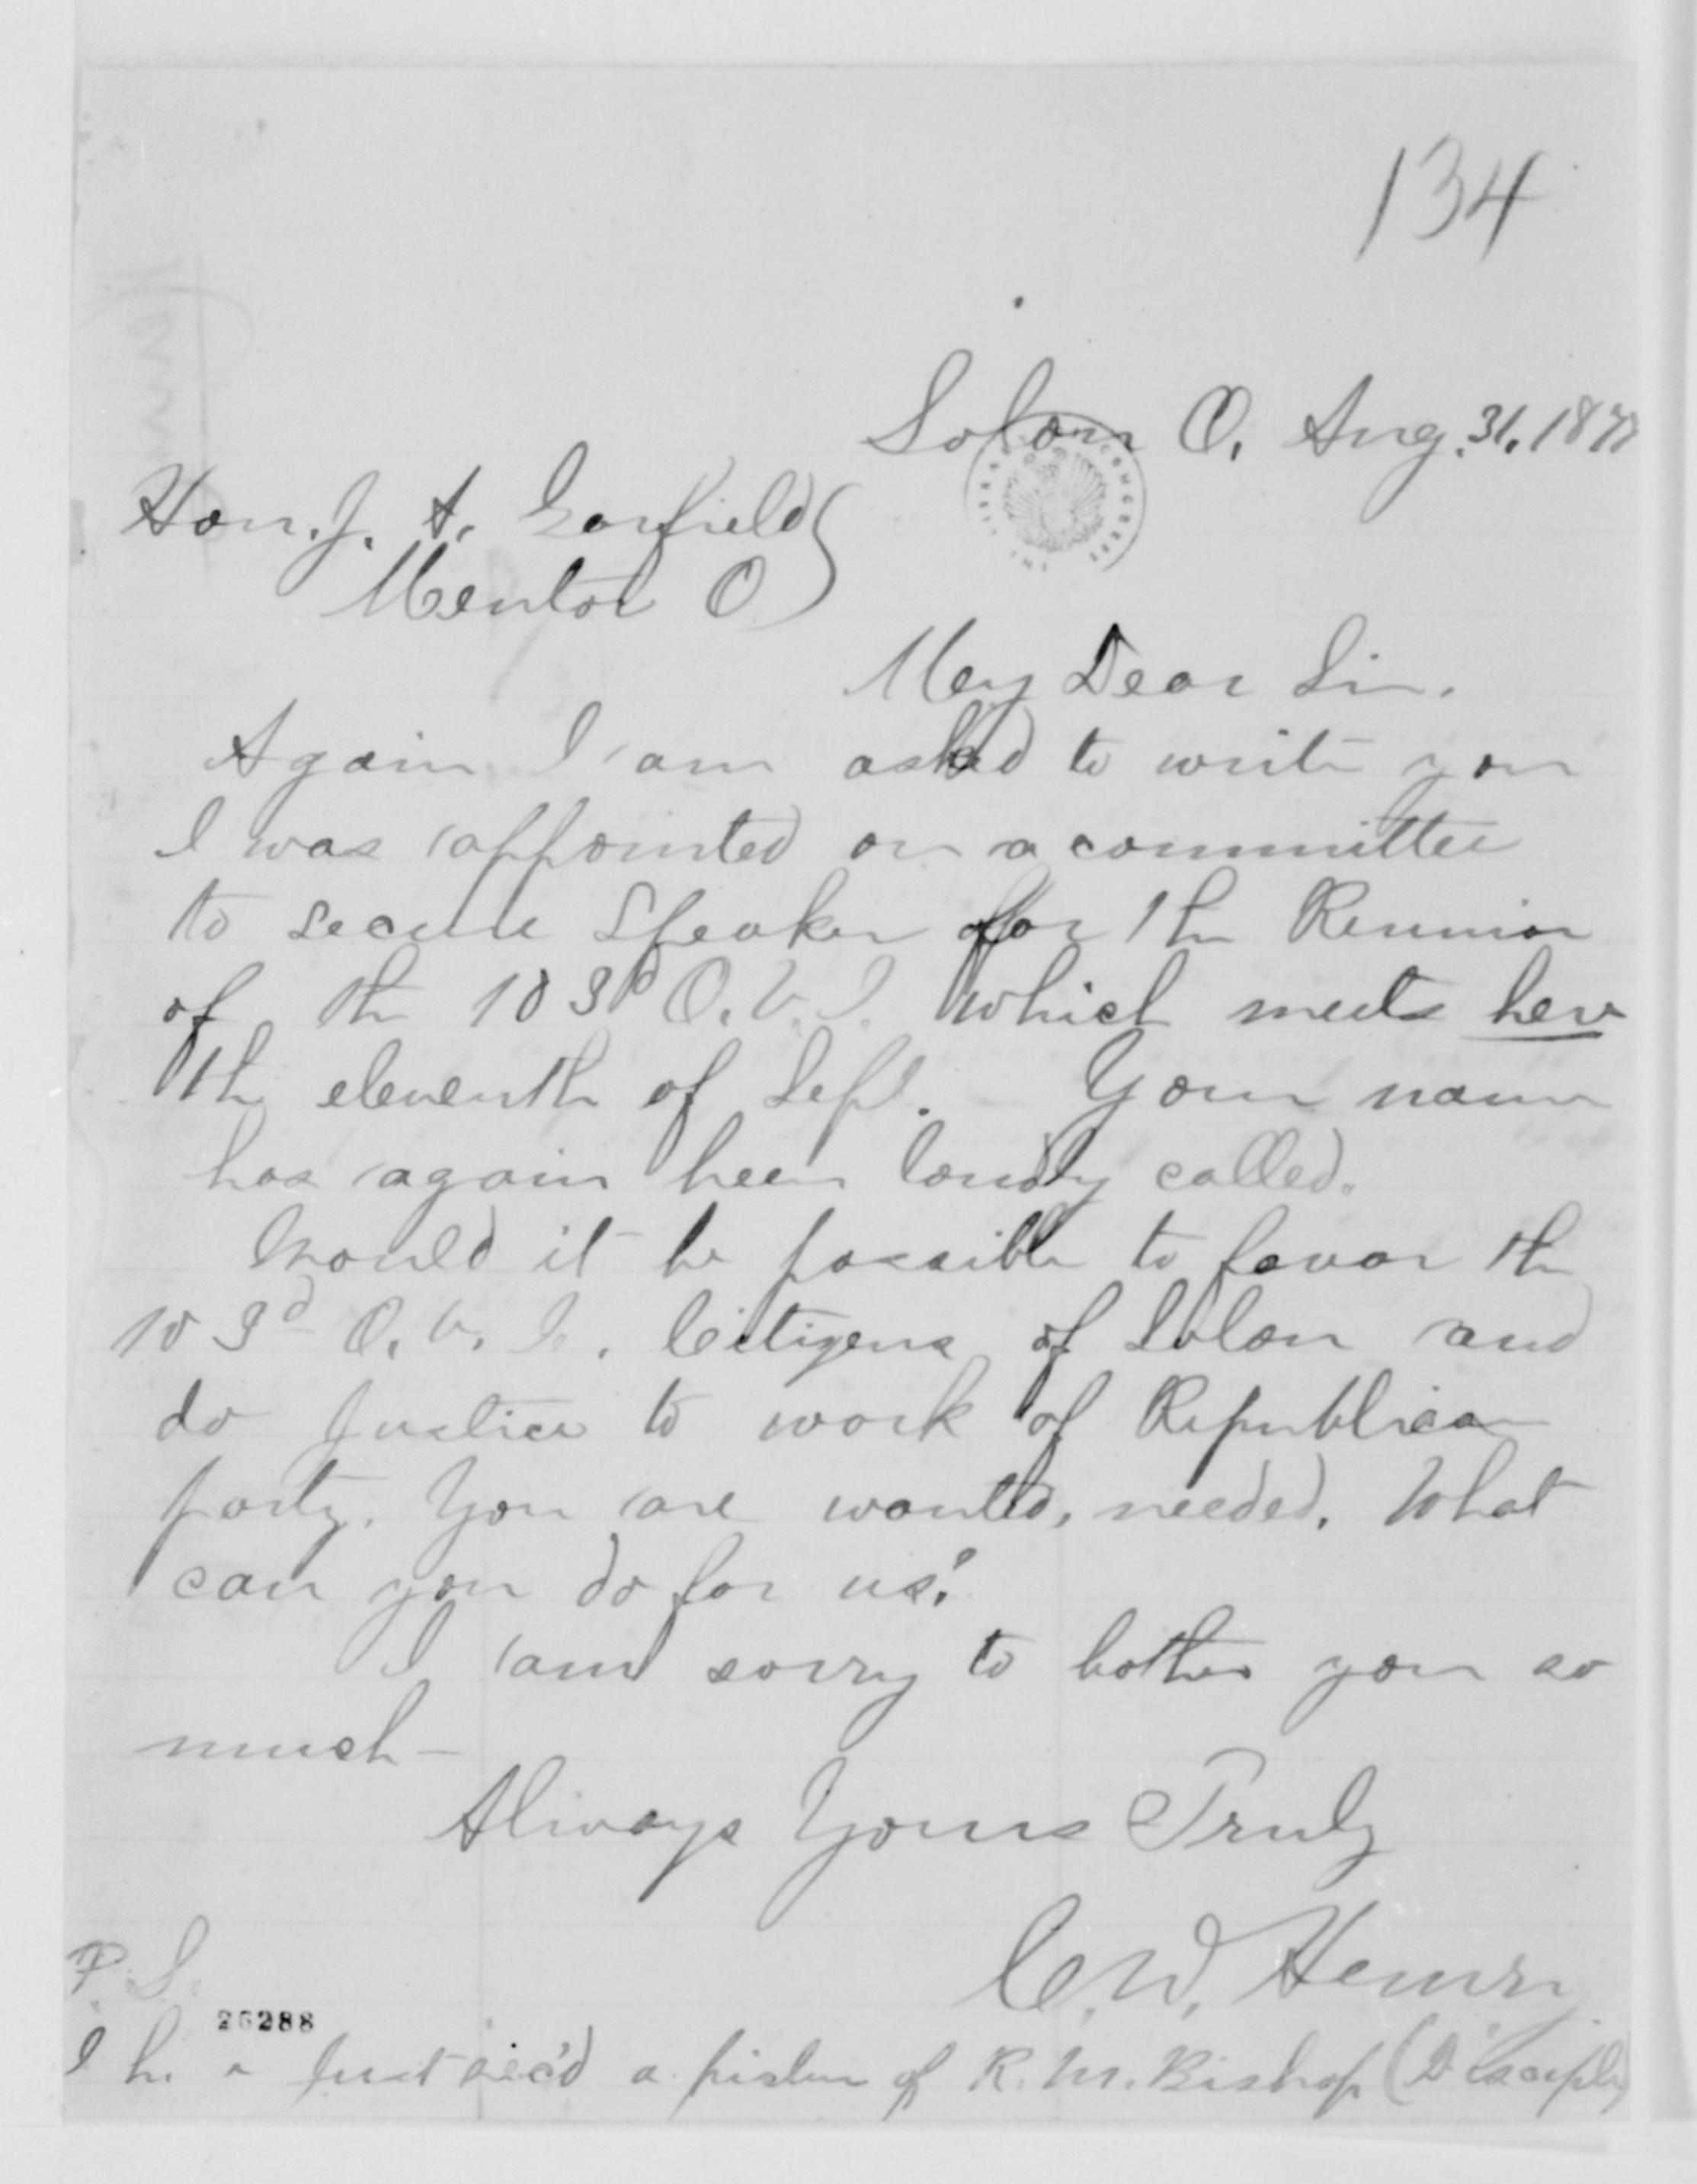 134
Solon O. Aug. 31. 187
Hon. J. A. Garfield
Mentor O
My Dear Sir.
Again I am asked to write you
I was appointed on a committee
to secure Speaker for the Reunion
of the 103d O. V. I. which meets here
the eleventh of Sept. Your name
has again been loudly called.
Would it be possible to favor the
103d O. V. I. Citizens of Solon and
do justice to work of Republican
party. You are wanted, needed. What
can you do for us?
I am sorry to bother you so
much -
Always Yours Truly
C. W. Henry
P. S.
26288
I h. just rec'd a picture of R. M. Bishop (Disciple)